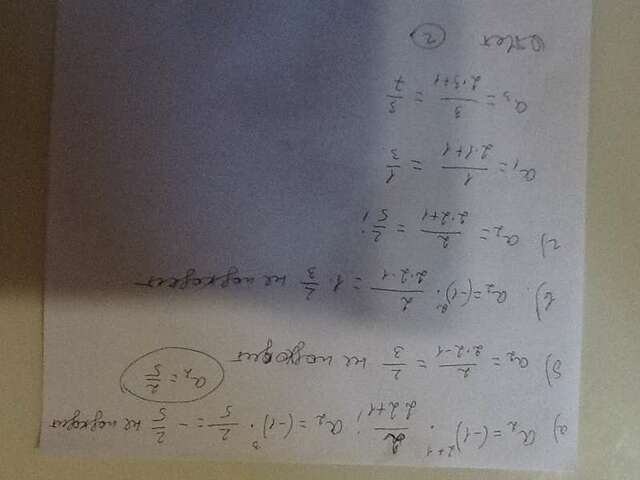 а) a₂ = (-1)²⁺¹ · 2/2·2+1; a₂ = (-1)³ · 2/5 = - 2/5 не подходит
a₂ = 2/5
б) a₂ = 2/2·2-1 = 2/3 не подходит
в) a₂ = (-1)² · 2/2·2-1 = 1· 2/3 не подходит
г) a₂ = 2/2·2+1 = 2/5;
a₁ = 1/2·1+1 = 1/3
a₃ = 3/2·3+1 = 3/7
Ответ г